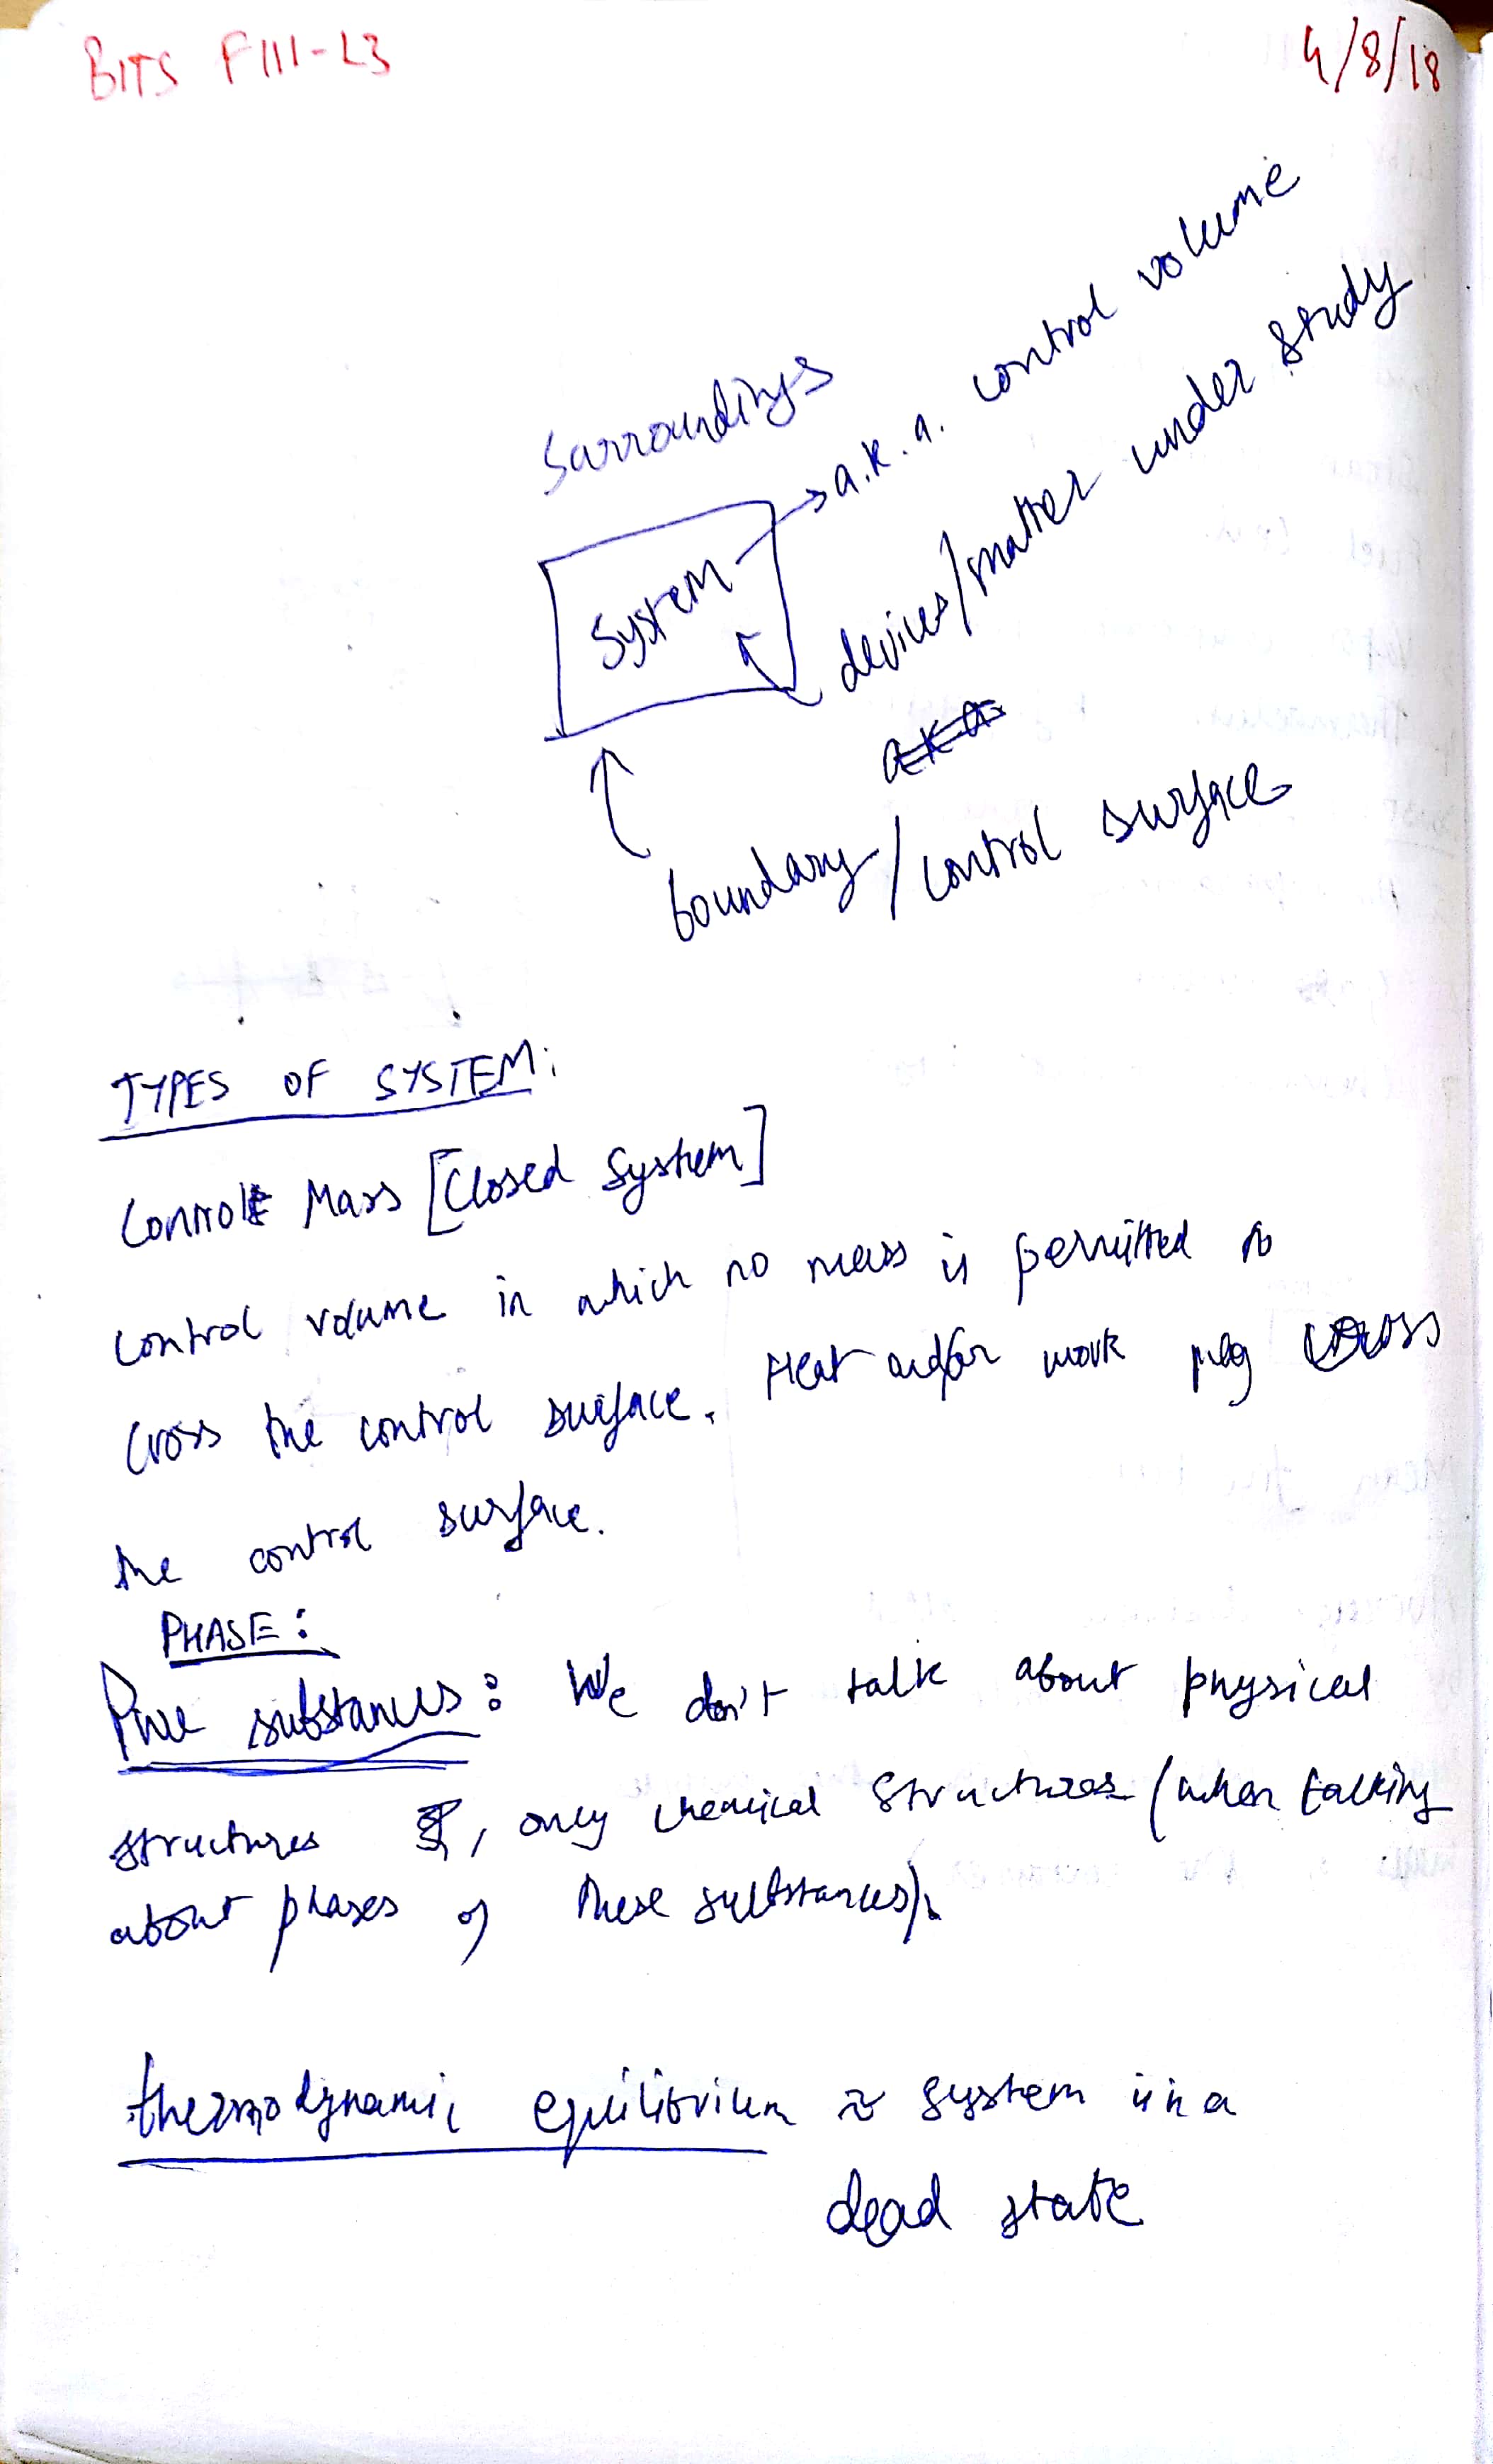 BITS F111-L3
4/8/18
Surroundings
System
a.k.a. control volume
devices/matter under study
a.k.a.
boundary/control surface
TYPES OF SYSTEM:
Control Mass [Closed System]
control volume in which no mass is permitted to
cross the control surface. Heat and/or work may cross
the control surface.
PHASE:
Pure substances: We don't talk about physical
structures, only chemical structures (when talking
about phases of these substances).
thermodynamic equilibrium ≈ system is in a
dead state